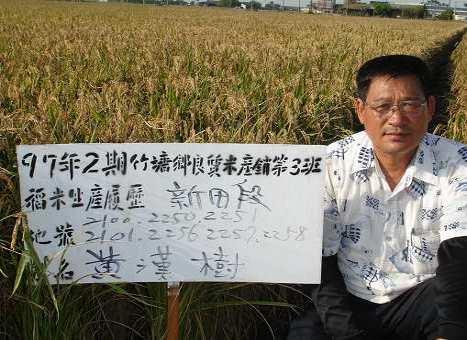 97年2期竹塘鄉良質米產銷第3班
稻米生產履歷 新田段
2100、2250、2251
地號2101、2256 2257、2258
名 黃漢樹